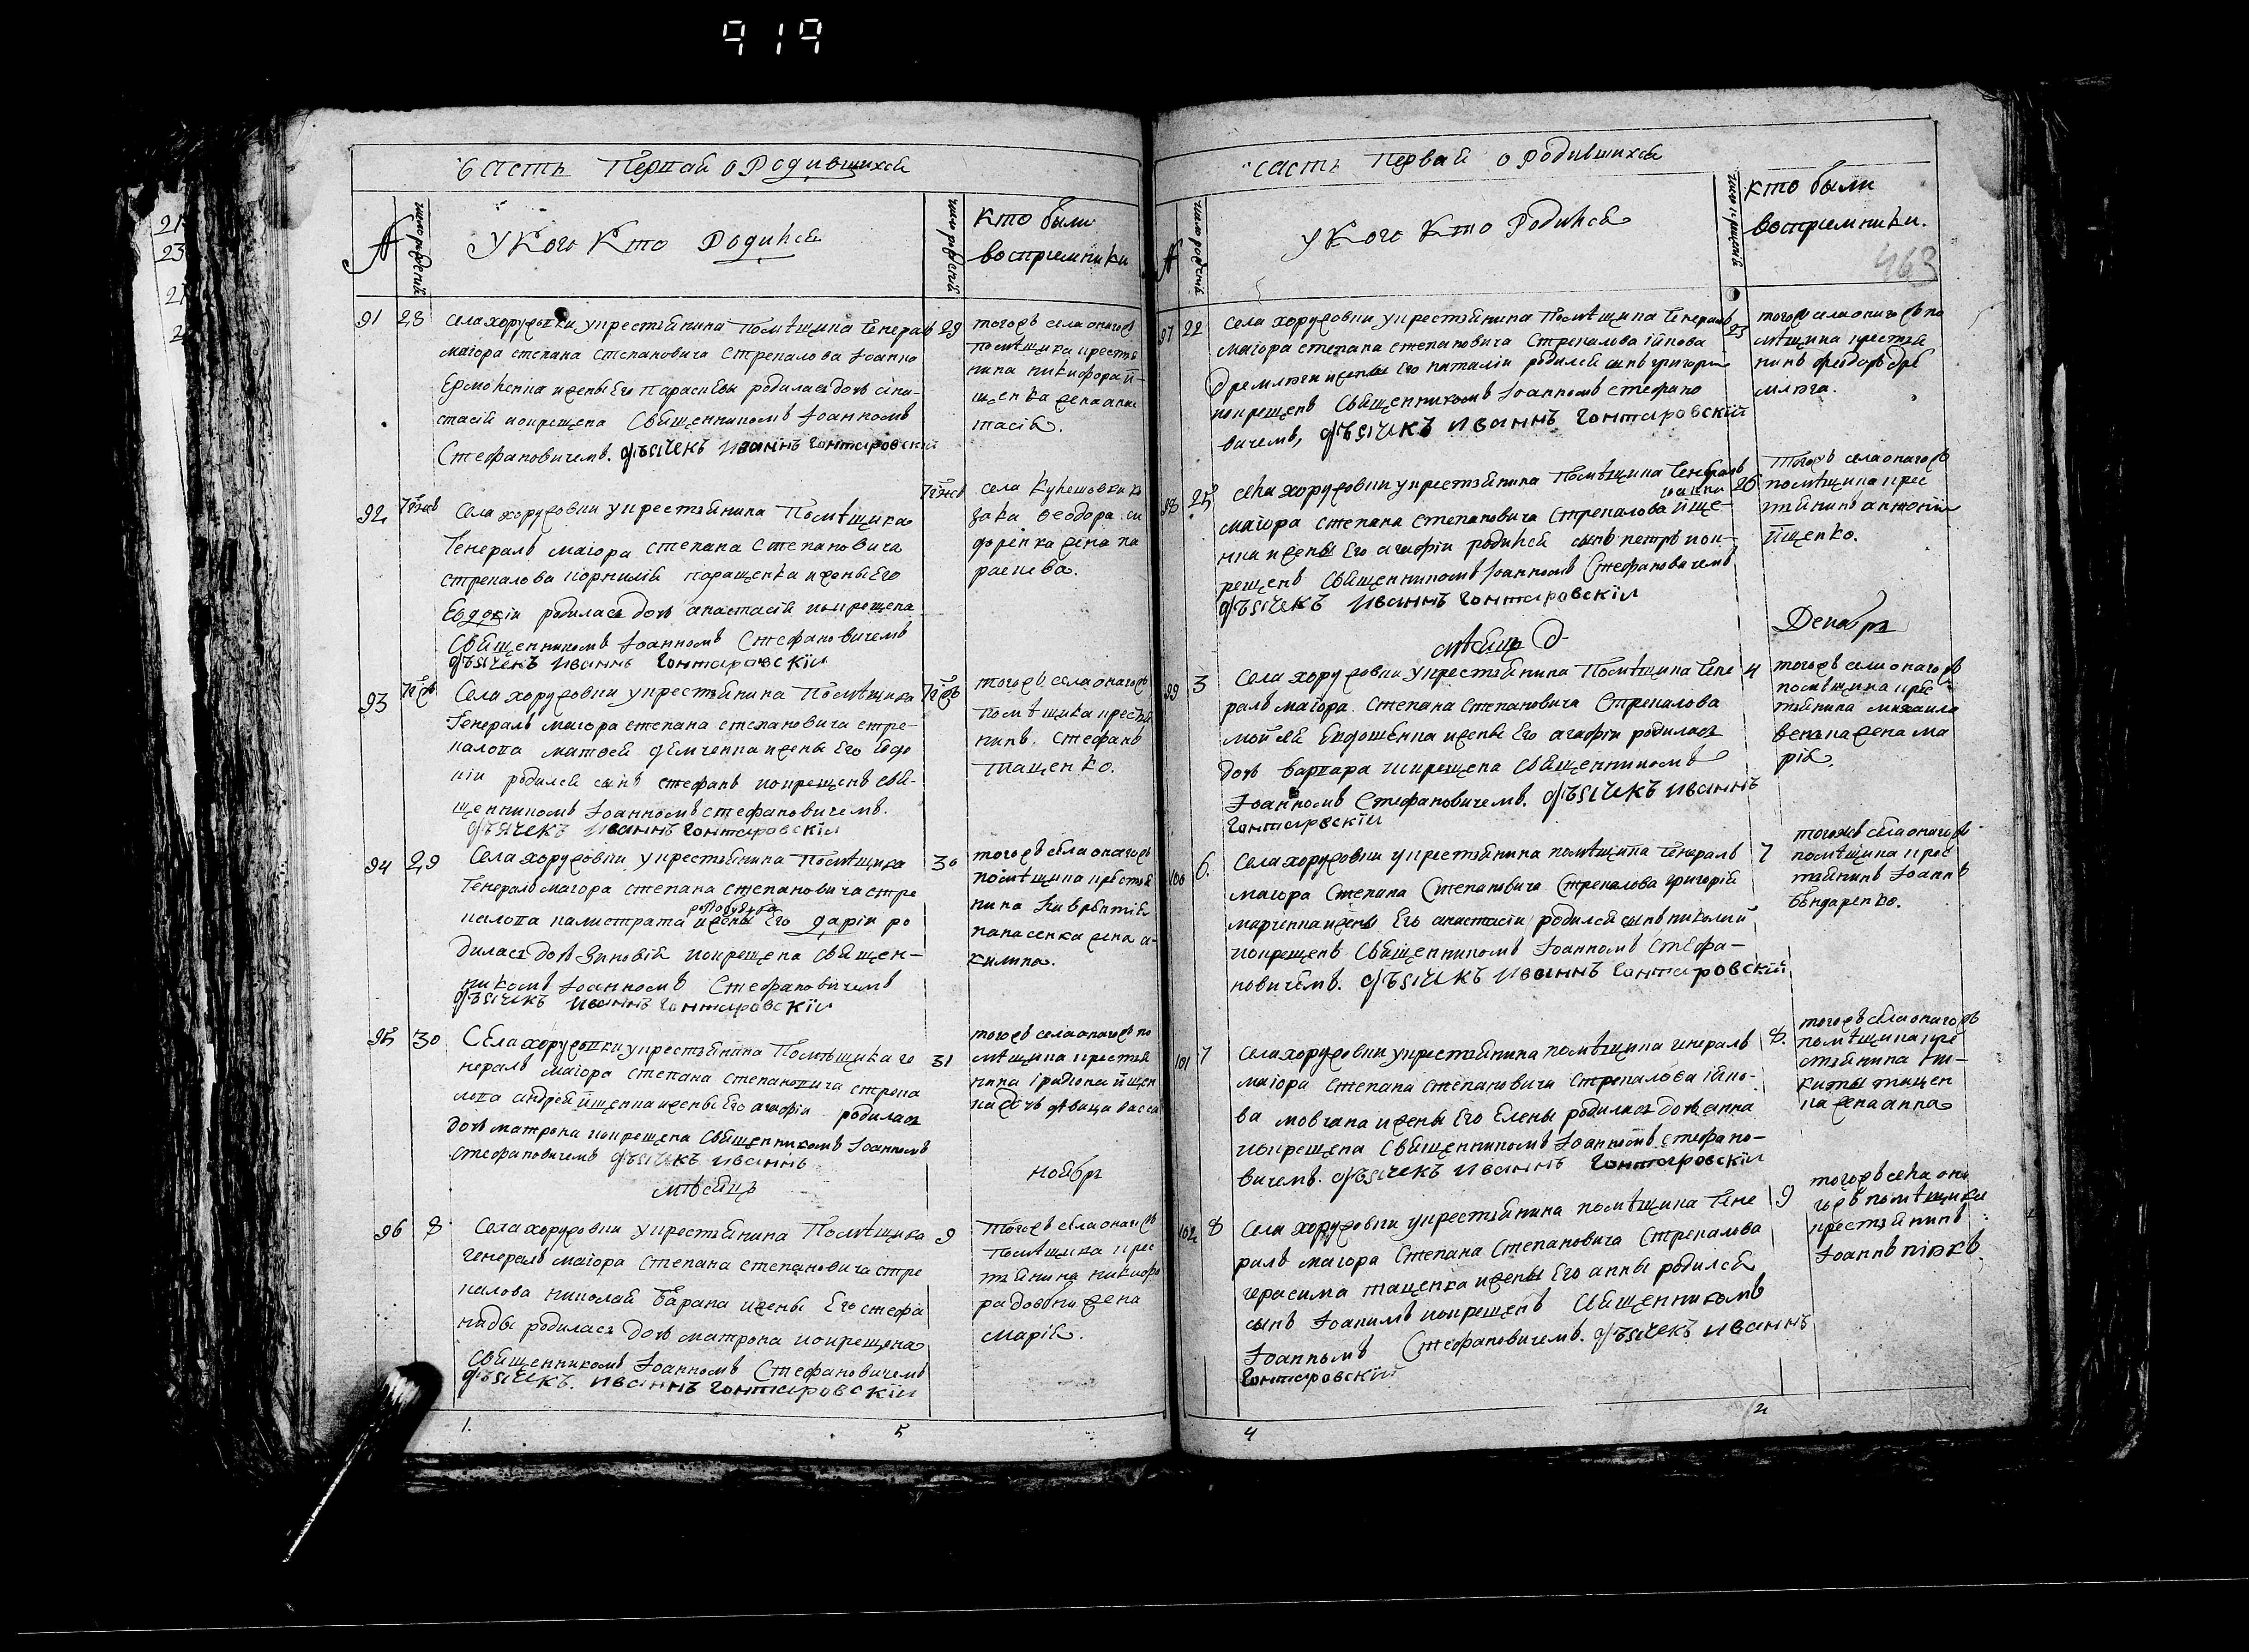 919
Часть Первая о Родившихся
№
число рождений
У Кого Кто Родился
кто были
воспрiемники
91 28 Села хоружовки у крестьянина Помѣщика Генералъ 29
маiора степана степановича Стрекалова Iоанна
жены Его параскевы родилась дочь
стасiя и окрещена Священникомъ Iоанномъ
Стефановичемъ. дьячекъ Иваннъ Гонтаровскiй
тогожъ села оногожъ
помѣщика крестья
нина никифора й-
щенка жена анас
тасiя.
92 Села хоружовки у крестьянина Помѣщика
Генералъ маiора степана степановича
стрекалова корнилiя паращенка и жены Его
Евдокiи родилась дочь анастасiя и окрещена
Священникомъ Iоанномъ Стефановичемъ
дьячекъ Иваннъ Гонтаровскiй
села Кулешовки ко
зака Феодора си
доренка жена па
раскева.
93 Села хоружовки у крестьянина Помѣщика
Генералъ маiора степана степановича стре-
калова матвея демченка и жены Его Евдо
кiи родился сынъ стефанъ и окрещенъ свя-
щенникомъ Iоанномъ стефановичемъ.
дьячекъ Иваннъ Гонтаровскiй
тогожъ села оногожъ
помѣщика крестья
нинъ стефанъ
тащенко.
94 29 Села хоружовки у крестьянина Помѣщика 30
Генералъ маiора степана степановича стре
калова калистрата и жены Его дарiи ро
дилась дочь Зиновiя и окрещена священ-
никомъ Iоанномъ Стефановичемъ
дьячекъ Иваннъ Гонтаровскiй
тогожъ села оногожъ
помѣщика крестья
нина Лаврентiя
панасенка жена а-
килина.
95 30 Села хоружовки у крестьянина Помѣщика ге 31
нералъ маiора степана степановича стрека
лова андрея йщенка и жены Его агафiи родилась
дочь матрона и окрещена Священникомъ Iоанномъ
стефановичемъ дьячекъ Иваннъ
тогожъ села оногожъ по
мѣщика крестья
нина iрадiона йщен
ка дочь дѣвица васса
мѣсяцъ ноябрь
96 8 Села хоружовки у крестьянина Помѣщика 9
генералъ маiора степана степановича стре
калова николая Барана и жены Его стефа
ниды родилась дочь матрона и окрещена
Священникомъ Iоанномъ Стефановичемъ
дьячекъ. Иваннъ Гонтаровскiй
тогожъ села оногожъ
помѣщика крес
тьянина никифо
ра довбни жена
марiя.
1. 5
часть Первая о Родившихся
№
число рожденiй
У Кого Кто Родился
кто были
воспрiемники.
463
97 22 Села хоружовки у крестьянина Помѣщика Генералъ 23
маiора степана степановича Стрекалова iякова
Дремлюги и жены Его наталiи родился сынъ григорiй
и окрещенъ Священникомъ Iоанномъ стефано
вичемъ, дьячекъ Иваннъ Гонтаровскiй
тогожъ села оногожъ по
мѣщика крестья
нинъ феодоръ дре
млюга.
98 25 Села хоружовки у крестьянина Помѣщика Генералъ 26
маiора степана степановича Стрекалова йще-
нка и жены Его агафiи родился сынъ петръ и ок-
рещенъ Священникомъ Iоанномъ Стефановичемъ
дьячекъ Иваннъ Гонтаровскiй
Тогожъ села оногожъ
помѣщика крес
тьянинъ антонiй
йщенко.
мѣсяцъ Декабрь
99 3 Села хоружовки у крестьянина Помѣщика Гене 4
ралъ маiора степана степановича Стрекалова
мойсея Евдошенка и жены Его агафiи родилась
дочь варвара и окрещена Священникомъ
Iоанномъ Стефановичемъ. дьячекъ Иваннъ
Гонтаровскiй
тогожъ села оногожъ
помѣщика крес
тьянина михаила
жена ма
рiя.
100 6. Села хоружовки у крестьянина помѣщика Генералъ 7
маiора Степана Степановича Стрекалова григорiя
марченка и жены Его анастасiи родился сынъ николай
и окрещенъ Священникомъ Iоанномъ Стефа-
новичемъ. дьячекъ Иваннъ Гонтаровскiй
тогожъ села оногожъ
помѣщика крес
тьянинъ Iоаннъ
Бондаренко.
101 7 Села хоружовки у крестьянина помѣщика генералъ 8.
маiора Степана степановича Стрекалова iяко-
ва мовчана и жены Его Елены родилась дочь анна
и окрещена Священникомъ Iоанномъ стефано-
вичемъ. дьячекъ Иваннъ Гонтаровскiй
тогожъ села оногожъ
помѣщика кре
стьянина ни-
киты тащен
ка жена анна
102 8 Села хоружовки у крестьянина помѣщика Гене 9
ралъ маiора Степана Степановича Стрекалова
герасима тащенка и жены Его анны родился
сынъ Iоакимъ и окрещенъ Священникомъ
Iоанномъ Стефановичемъ. дьячекъ Иваннъ
Гонтаровскiй
тогожъ села оно
гожъ помѣщика
крестьянинъ
Iоаннъ
4 2